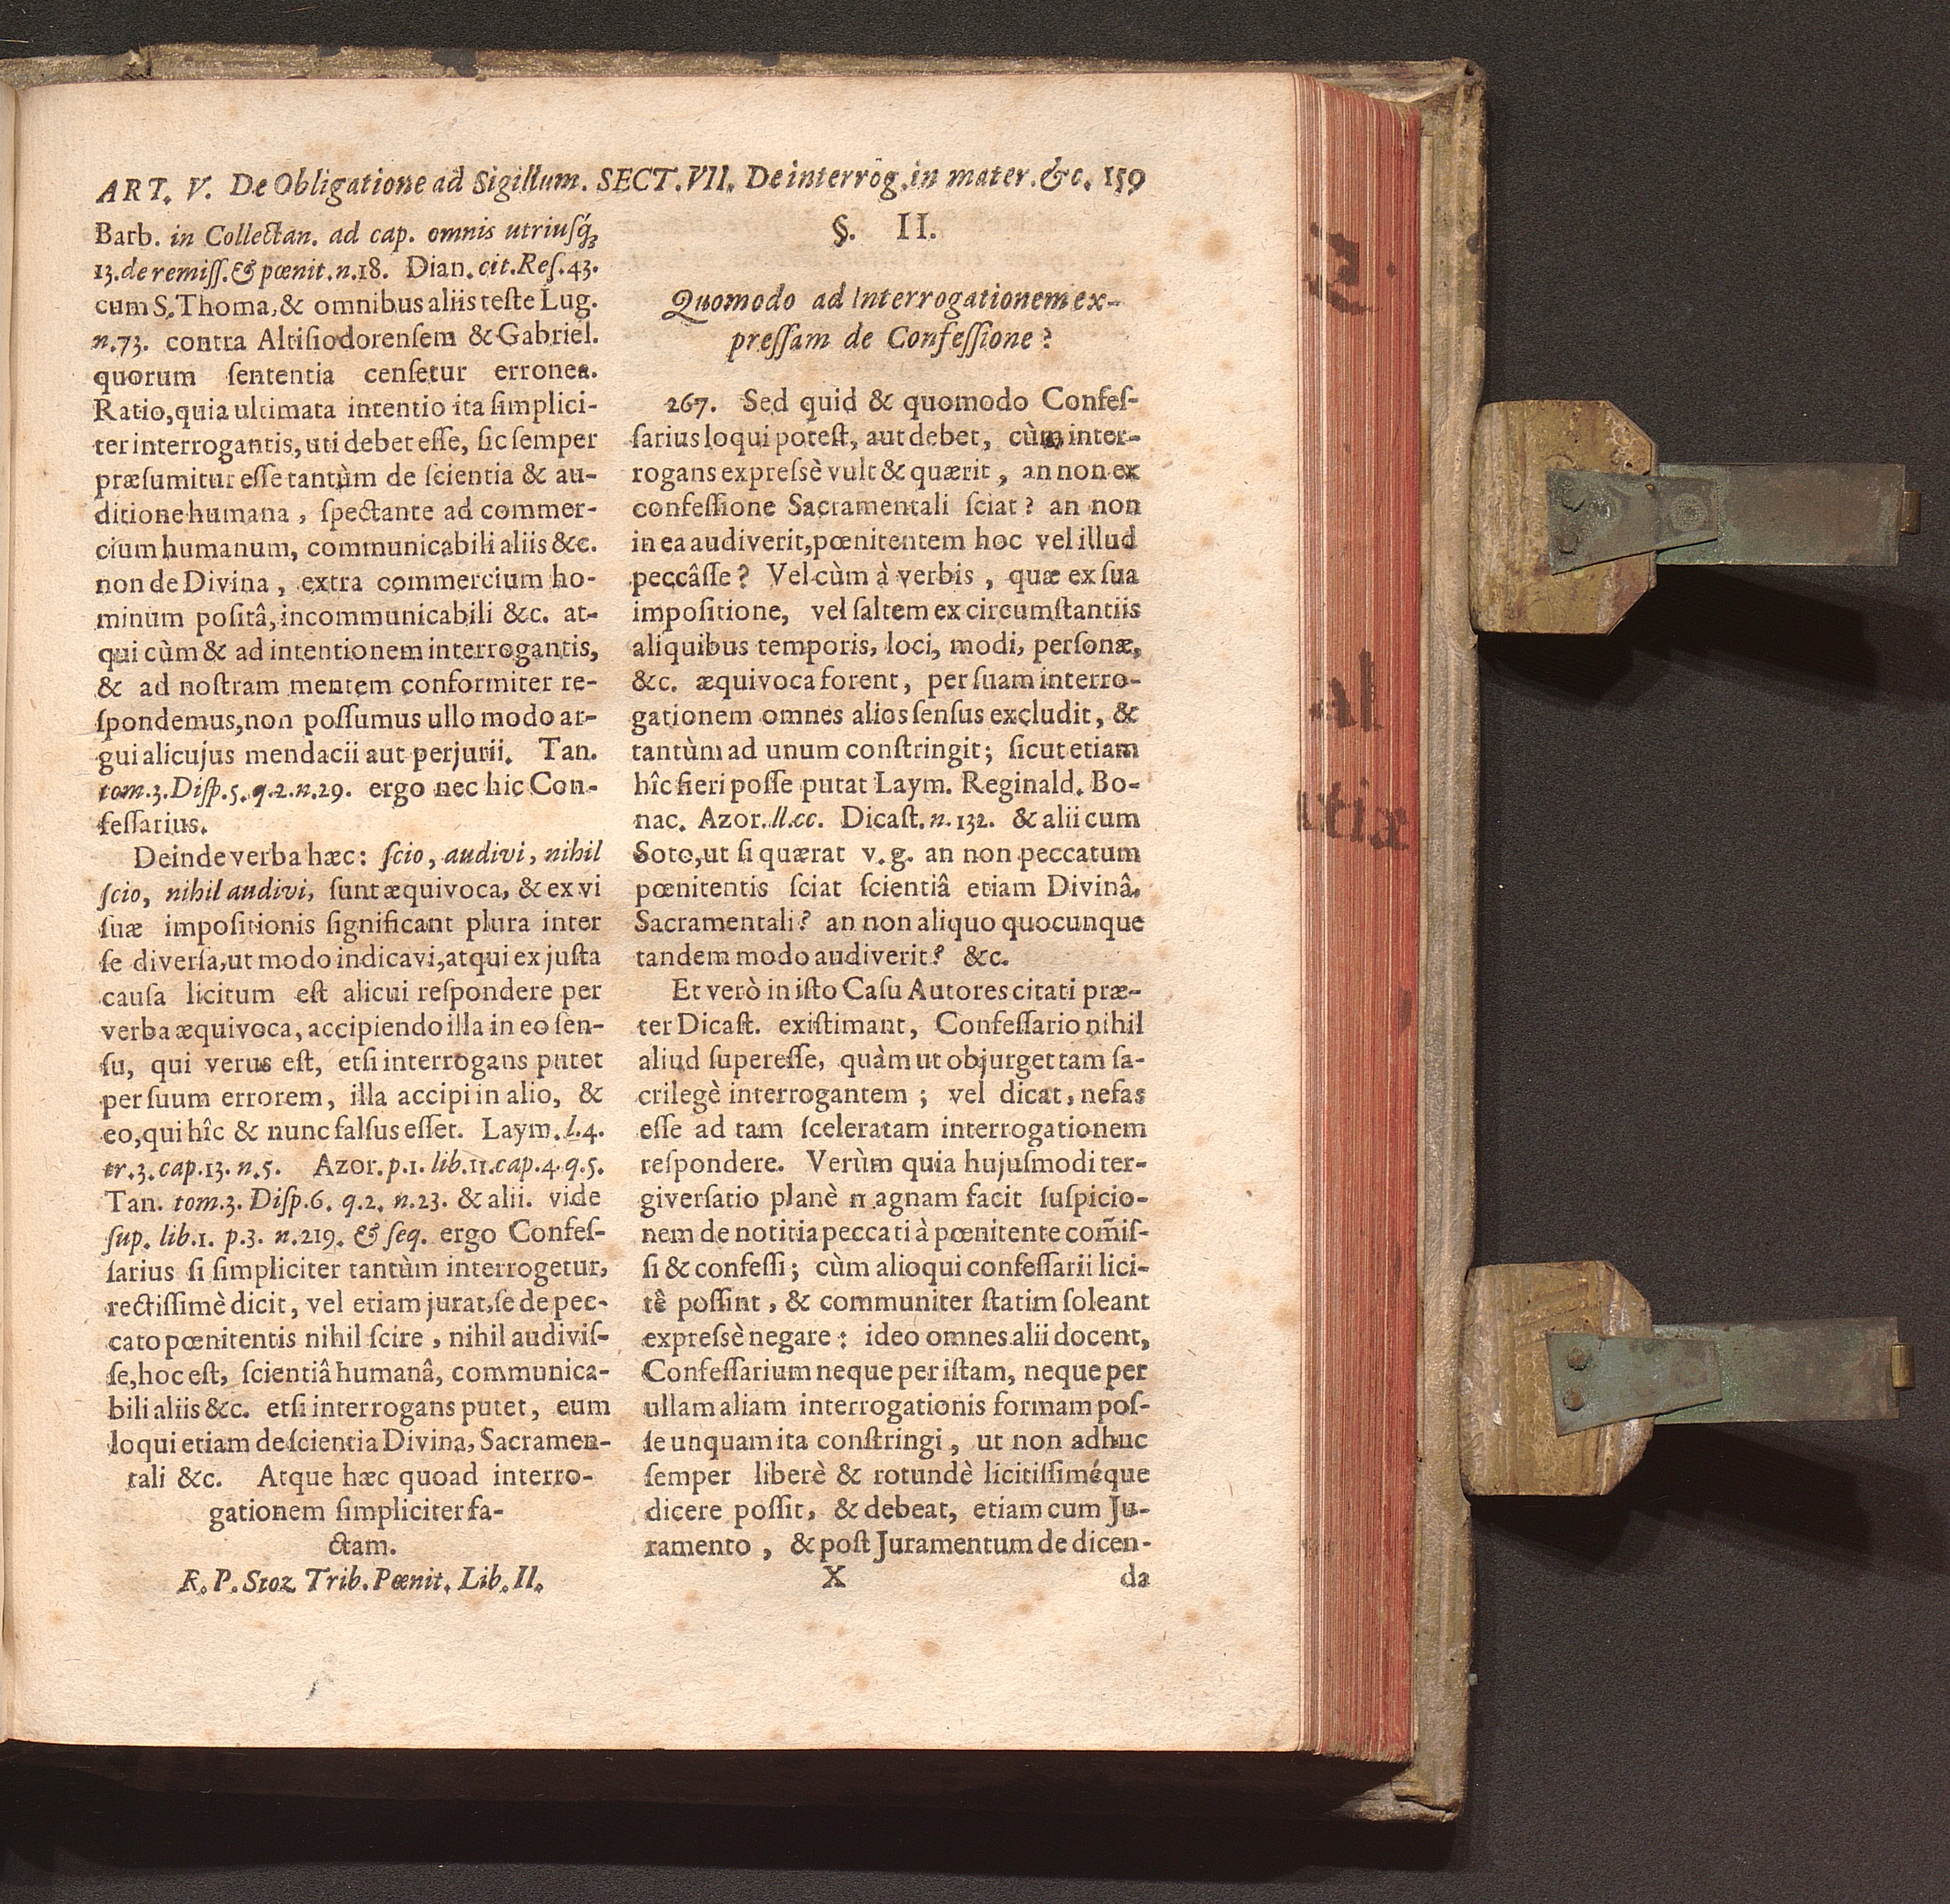 ART. V. De Obligatione ad Sigillum. SECT. VII. De interrog. in mater. &c. 159
Barb. in Collectan. ad cap. omnis utriusq́;
13. de remiſſ. & pœnit. n. 18. Dian. cit. Reſ. 43.
cum S. Thoma, & omnibus aliis teſte Lug.
n. 73. contra Altiſiodorenſem & Gabriel.
quorum ſententia cenſetur erronea.
Ratio, quia ultimata intentio ita ſimplici-
ter interrogantis, uti debet eſſe, ſic ſemper
præſumitur eſſe tantùm de ſcientia & au-
ditione humana, ſpectante ad commer-
cium humanum, communicabili aliis &c.
non de Divina, extra commercium ho-
minum poſitâ, incommunicabili &c. at-
qui cùm & ad intentionem interrogantis,
& ad noſtram mentem conformiter re-
ſpondemus, non poſſumus ullo modo ar-
gui alicujus mendacii aut perjurii. Tan.
tom. 3. Diſp. 5. q. 2. n. 29. ergo nec hic Con-
feſſarius.
Deinde verba hæc: ſcio, audivi, nihil
ſcio, nihil audivi, ſunt æquivoca, & ex vi
ſuæ impoſitionis ſignificant plura inter
ſe diverſa, ut modo indicavi, atqui ex juſta
cauſa licitum eſt alicui reſpondere per
verba æquivoca, accipiendo illa in eo ſen-
ſu, qui verus eſt, etſi interrogans putet
per ſuum errorem, illa accipi in alio, &
eo, qui hîc & nunc falſus eſſet. Laym. l. 4.
tr. 3. cap. 13. n. 5. Azor. p. 1. lib. 11. cap. 4. q. 5.
Tan. tom. 3. Diſp. 6. q. 2. n. 23. & alii. vide
ſup. lib. 1. p. 3. n. 219. & ſeq. ergo Confeſ-
ſarius ſi ſimpliciter tantùm interrogetur,
rectiſſimè dicit, vel etiam jurat, ſe de pec-
cato pœnitentis nihil ſcire, nihil audiviſ-
ſe, hoc eſt, ſcientiâ humanâ, communica-
bili aliis &c. etſi interrogans putet, eum
loqui etiam de ſcientia Divina, Sacramen-
tali &c. Atque hæc quoad interro-
gationem ſimpliciter fa-
ctam.
R. P. Stoz Trib. Pœnit. Lib. II.
§. II.
Quomodo ad Interrogationem ex-
preſſam de Confeſſione?
267. Sed quid & quomodo Confeſ-
ſarius loqui poteſt, aut debet, cùm inter-
rogans expreſsè vult & quærit, an non ex
confeſſione Sacramentali ſciat? an non
in ea audiverit, pœnitentem hoc vel illud
peccâſſe? Vel cùm à verbis, quæ ex ſua
impoſitione, vel ſaltem ex circumſtantiis
aliquibus temporis, loci, modi, perſonæ,
&c. æquivoca forent, per ſuam interro-
gationem omnes alios ſenſus excludit, &
tantùm ad unum conſtringit; ſicut etiam
hîc fieri poſſe putat Laym. Reginald. Bo-
nac. Azor. ll. cc. Dicaſt. n. 132. & alii cum
Soto, ut ſi quærat v. g. an non peccatum
pœnitentis ſciat ſcientiâ etiam Divinâ,
Sacramentali? an non aliquo quocunque
tandem modo audiverit? &c.
Et verò in iſto Caſu Autores citati præ-
ter Dicaſt. exiſtimant, Confeſſario nihil
aliud ſupereſſe, quàm ut objurget tam ſa-
crilegè interrogantem; vel dicat, nefas
eſſe ad tam ſceleratam interrogationem
reſpondere. Verùm quia hujuſmodi ter-
giverſatio planè magnam facit ſuſpicio-
nem de notitia peccati à pœnitente com̃iſ-
ſi & confeſſi; cùm alioqui confeſſarii lici-
tè poſſint, & communiter ſtatim ſoleant
expreſsè negare: ideo omnes alii docent,
Confeſſarium neque per iſtam, neque per
ullam aliam interrogationis formam poſ-
ſe unquam ita conſtringi, ut non adhuc
ſemper liberè & rotundè licitiſſiméque
dicere poſſit, & debeat, etiam cum Ju-
ramento, & poſt Juramentum de dicen-
X da